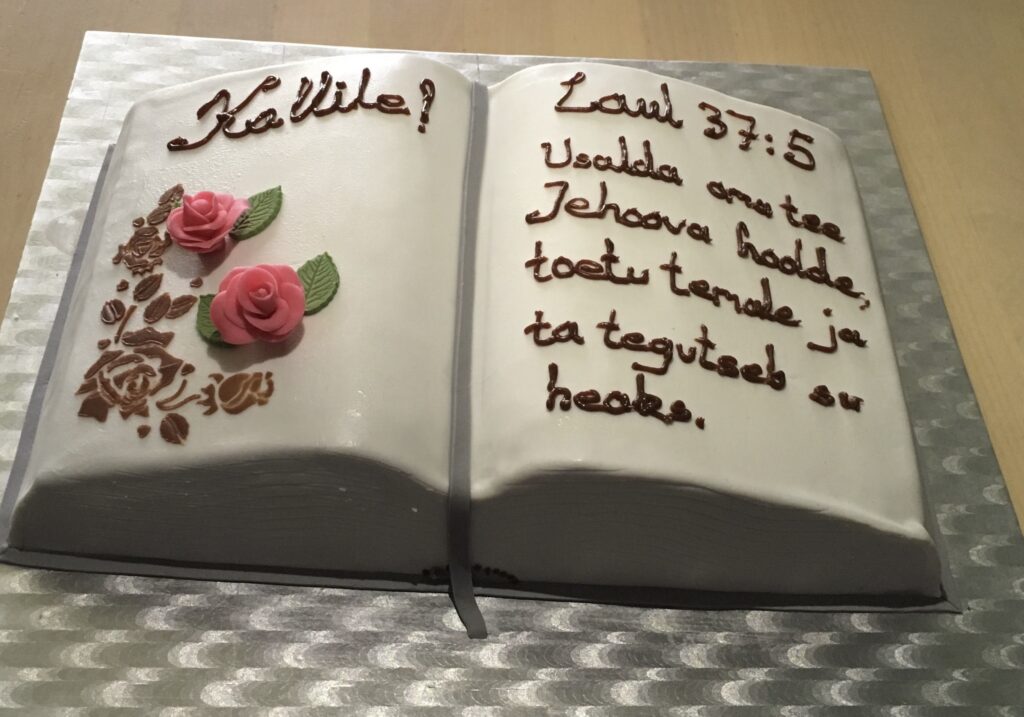 Kallile!
Laul 37:5
Usalda oma tee
Jehoova hoolde,
toetu temale ja
ta tegutseb su
heaks.